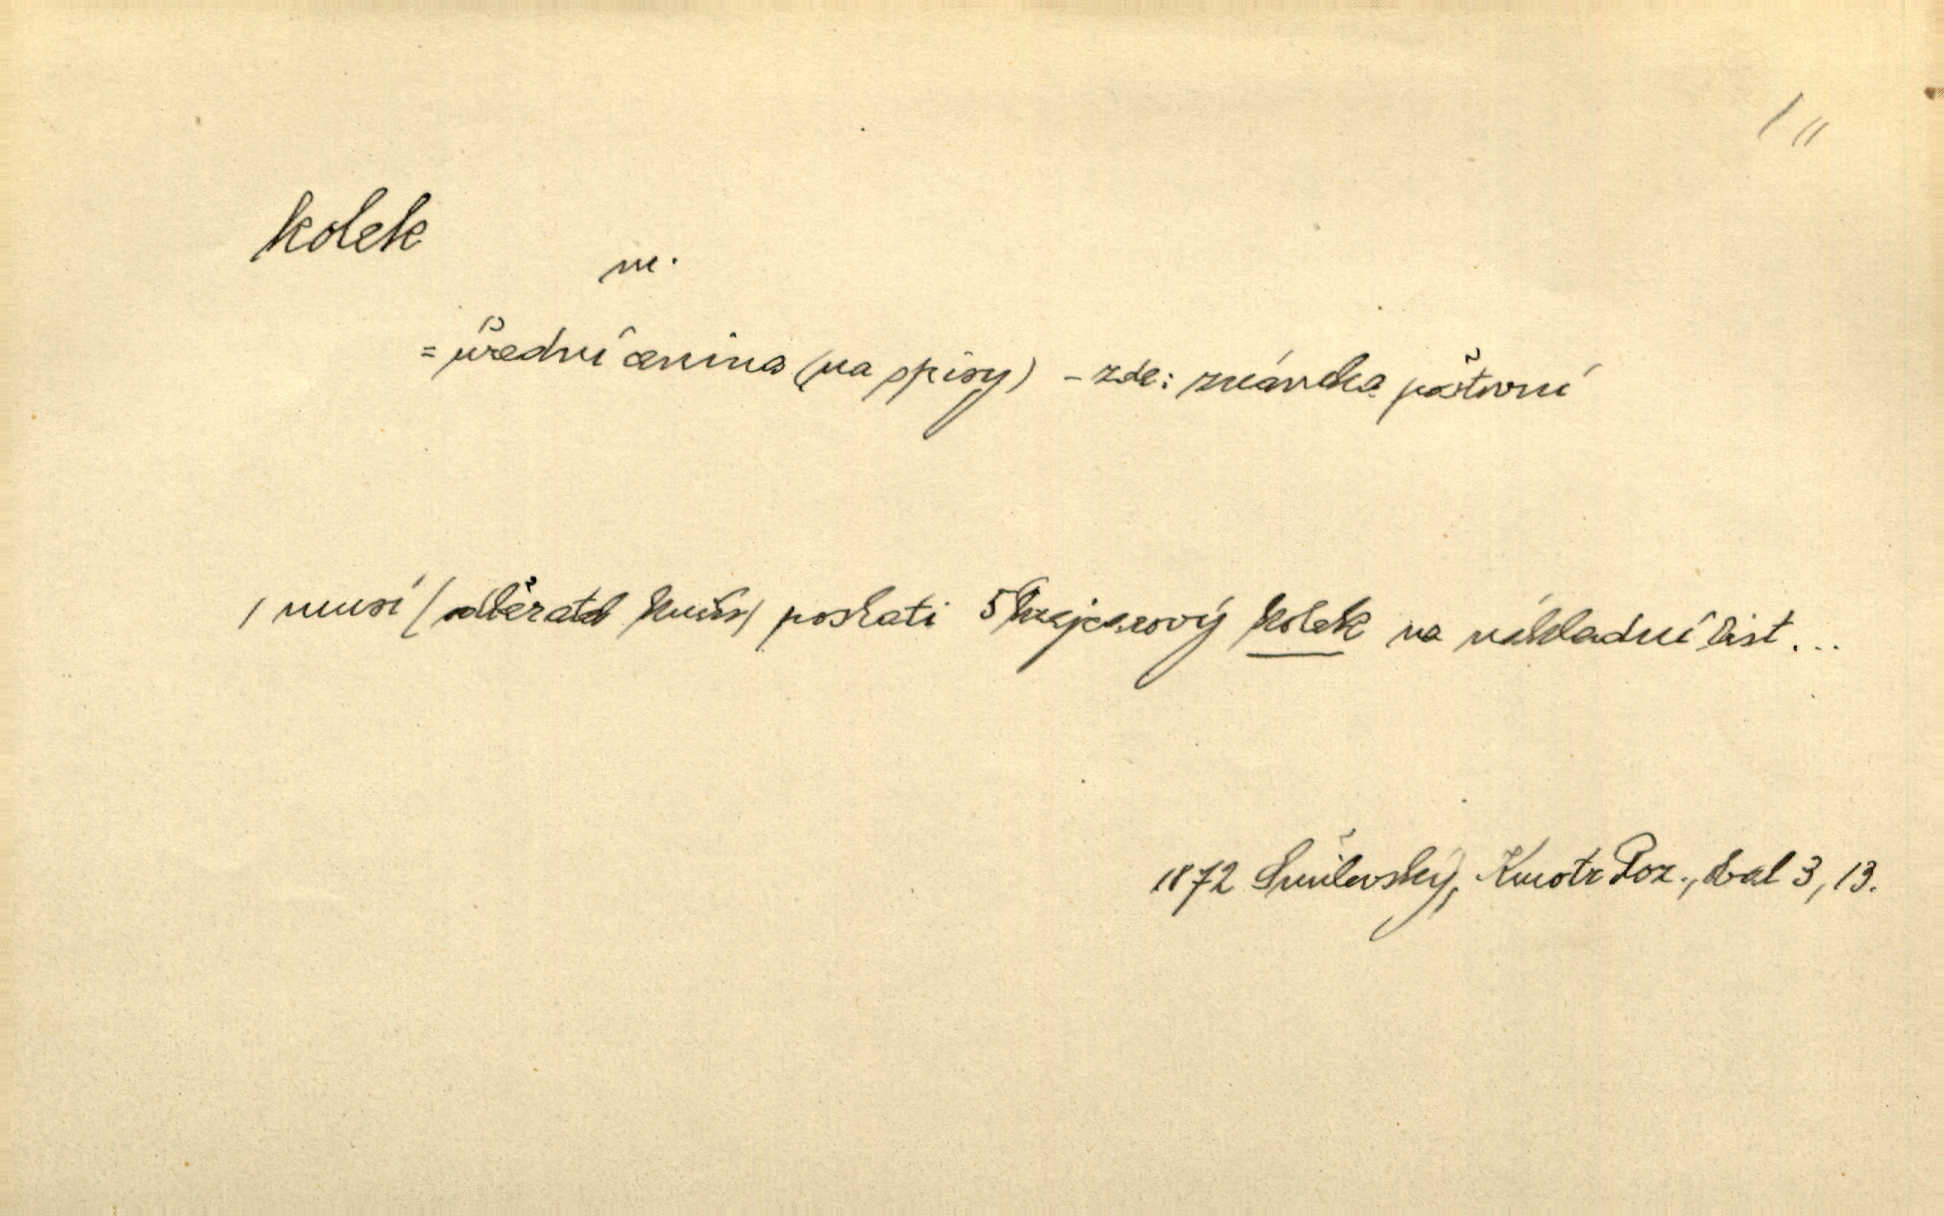 kolek
m.
= úřední cenina (na spisy) – zde: známka poštovní
/ musí / odběratel knih / poslati 5krejcarový kolek na nákladní list...
1872 Šmilovský, Kmotr Roz., sval 3, 13.